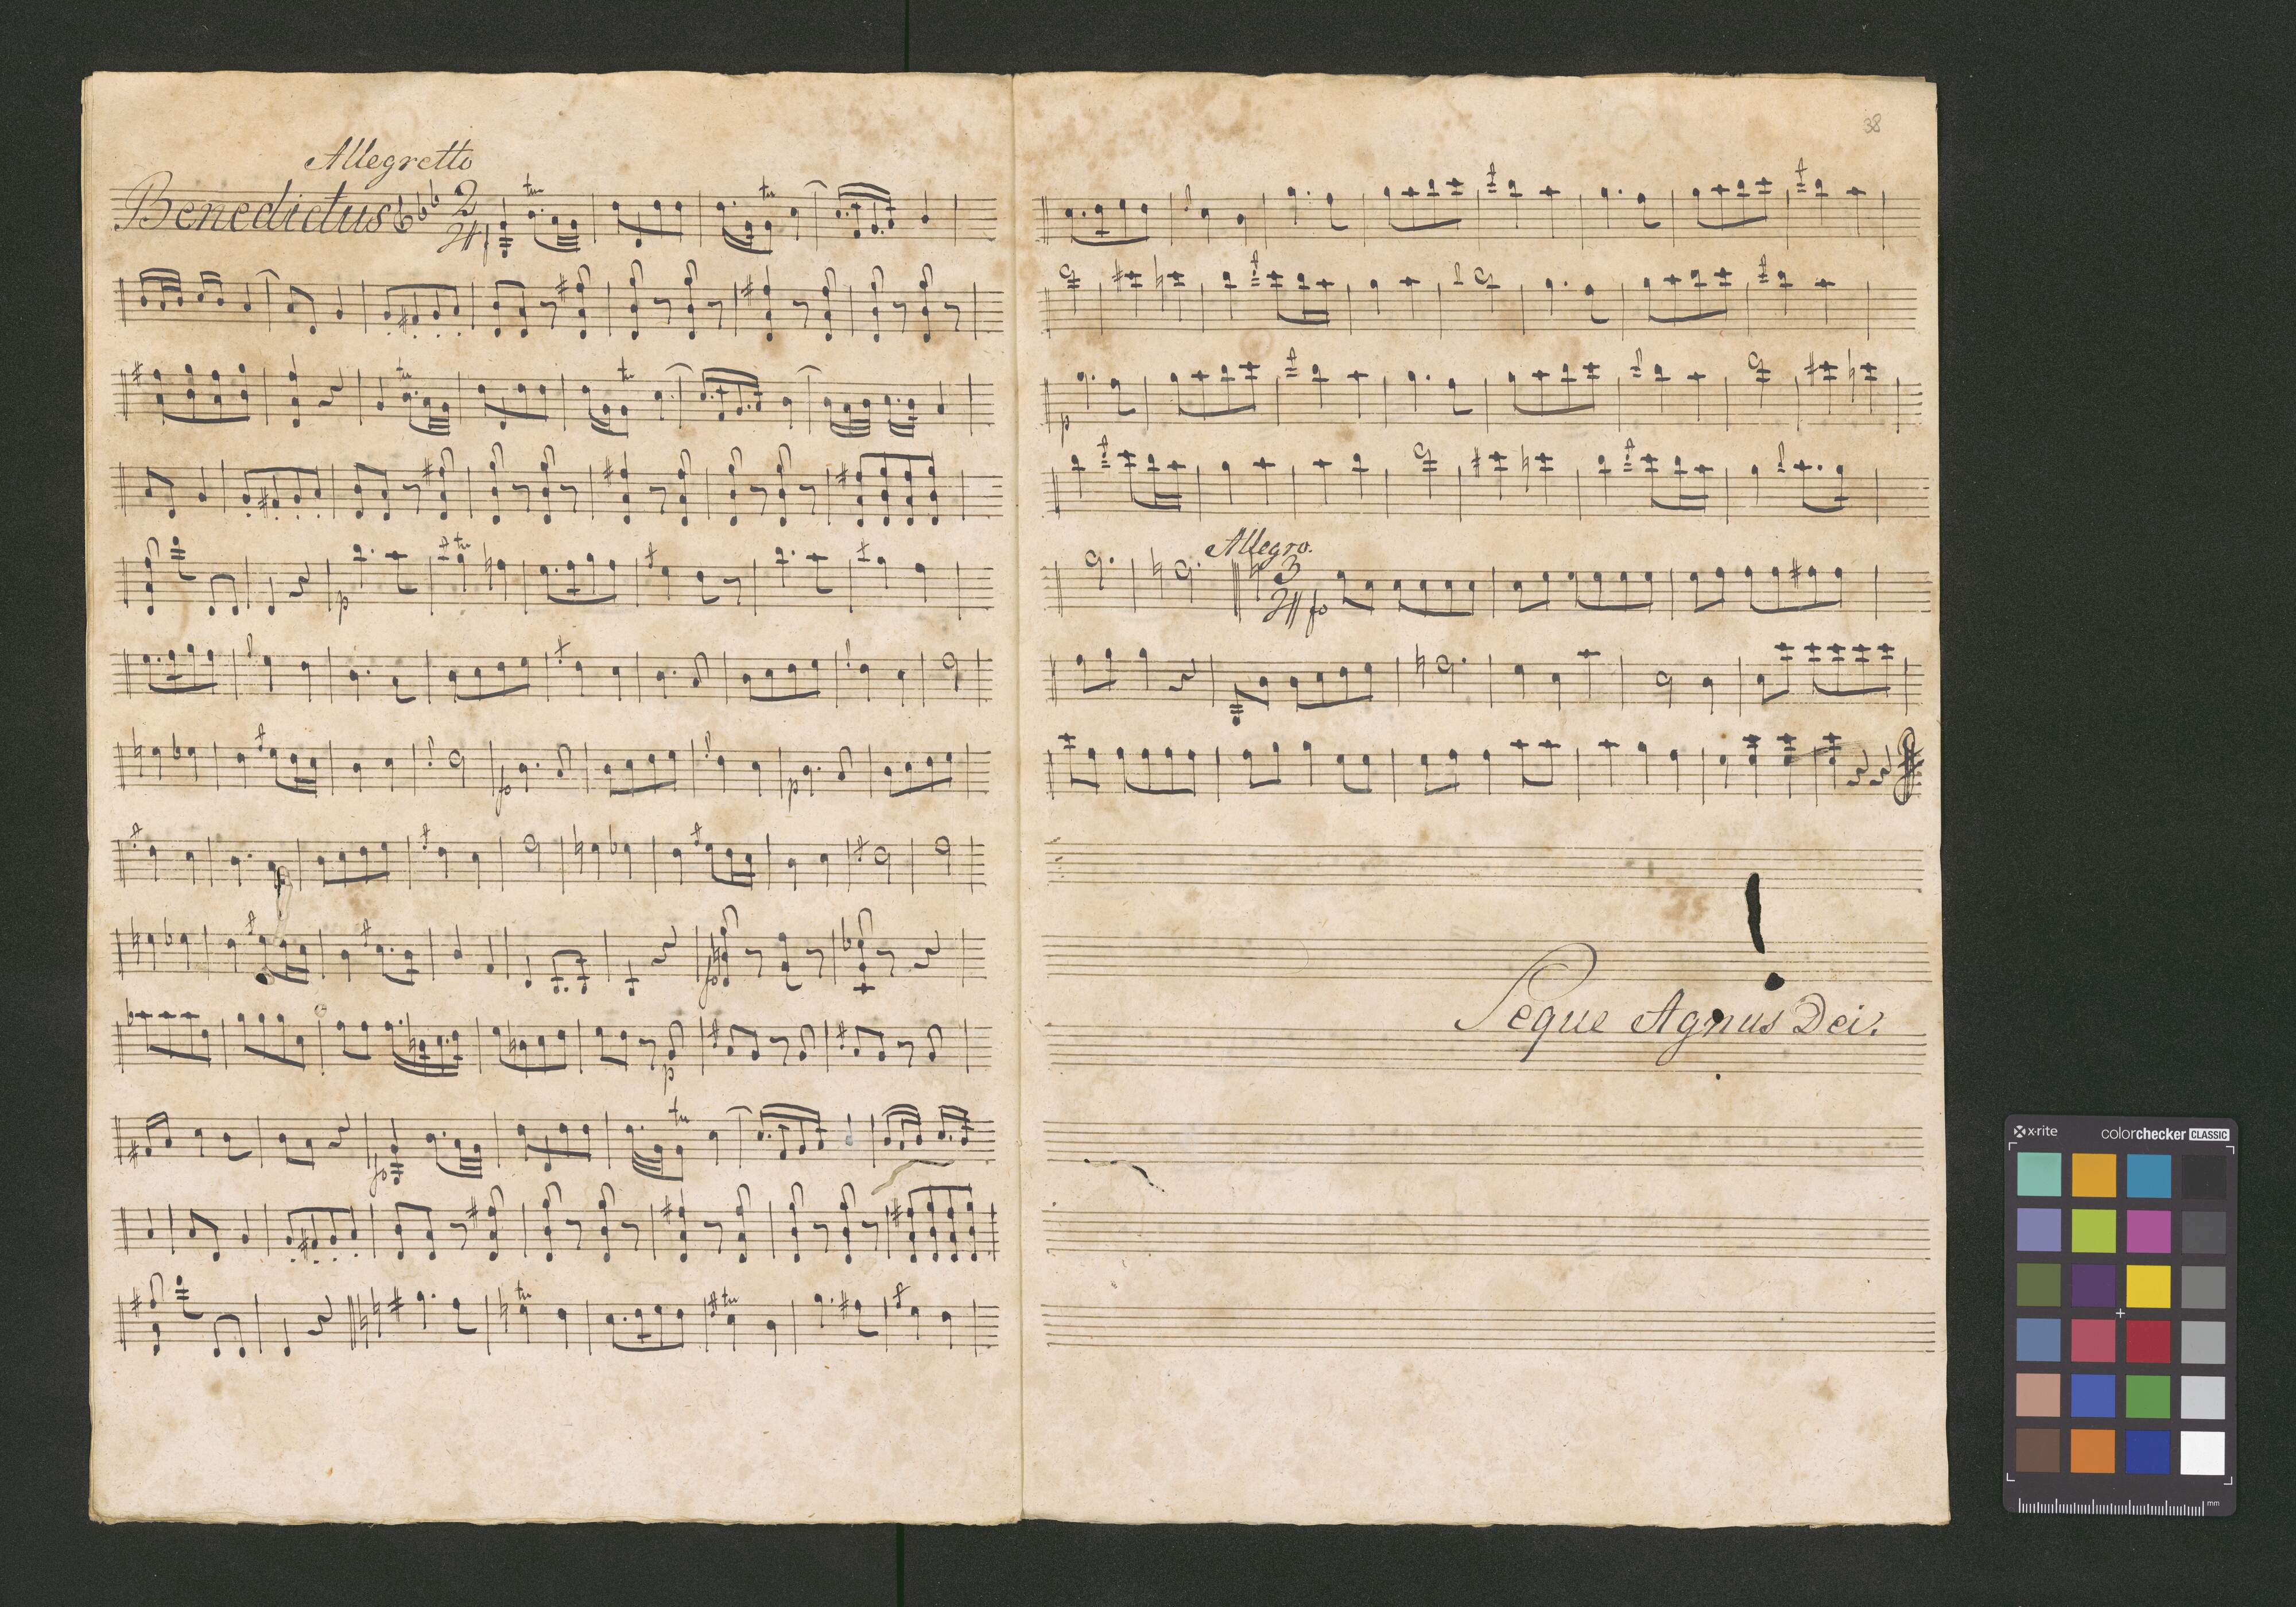 Allegretto
Benedictus 2
4
tr
tr
tr
tr
p
tr
fo
p
fo
p
tr
fo
tr
tr
38
p
Allegro.
3
4 fo
Seque Agnus Dei.
x-rite colorchecker CLASSIC
mm